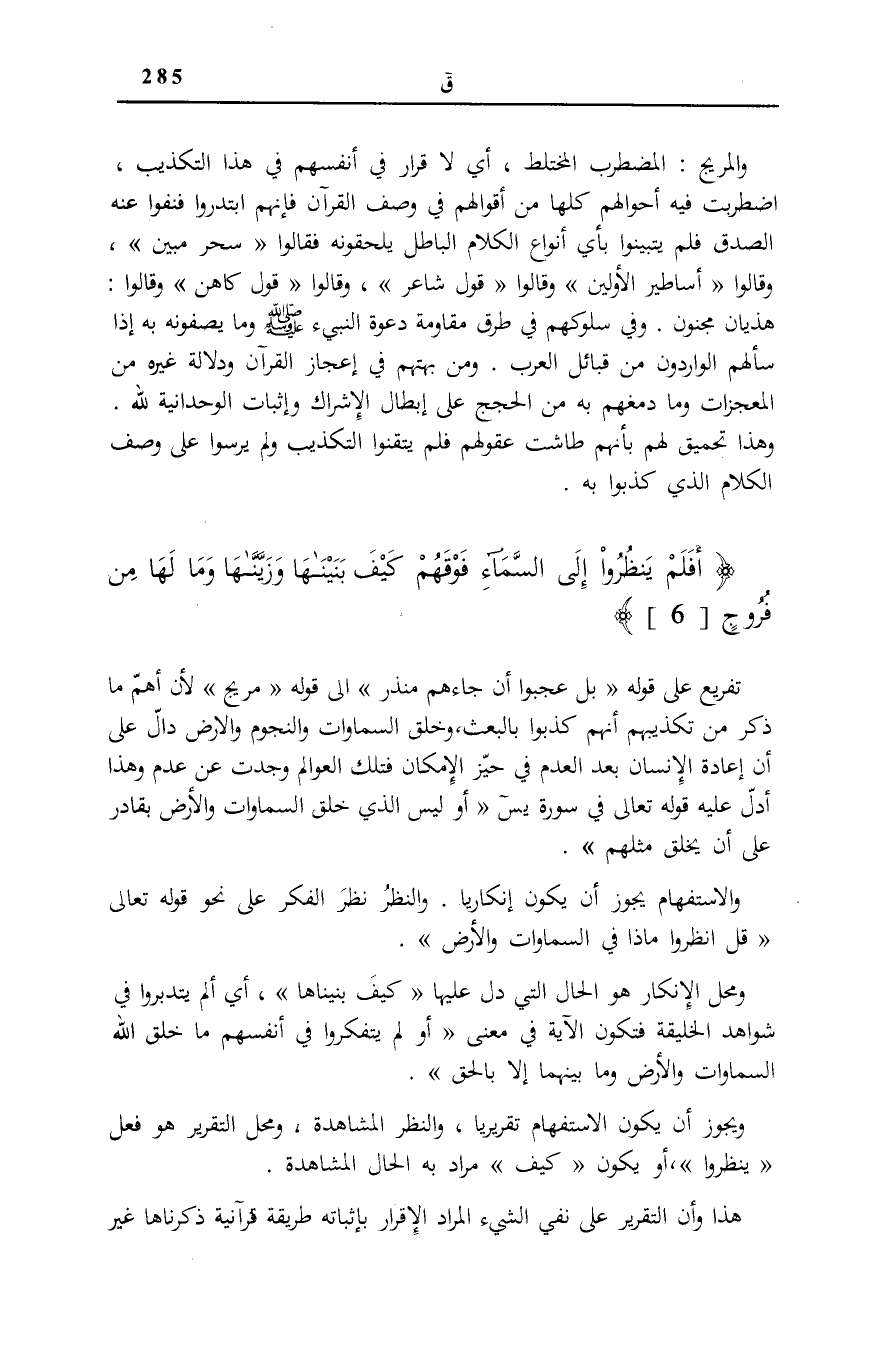 285
قٓ
والمريج : المضطرب المختلط ، أي لا قرار في أنفسهم في هذا التكذيب ،
اضطربت فيه أحوالهم كلها من أقوالهم في وصف القرآن فإنهم ابتدروا فنفوا عنه
الصدق فلم يتبينوا بأي أنواع الكلام الباطل يلحقونه فقالوا « سحر مبين » ،
وقالوا « أساطير الأولين » وقالوا « قول شاعر » ، وقالوا « قول كاهن » وقالوا :
هذيان مجنون . وفي سلوكهم في طرق مقاومة دعوة النبيء ﷺ وما يصفونه به إذا
سألهم الواردون من قبائل العرب . ومن بهتهم في إعجاز القرآن ودلالة غيره من
المعجزات وما دمغهم به من الحجج على إبطال الإشراك وإثبات الوحدانية لله .
وهذا تحميق لهم بأنهم طاشت عقولهم فلم يتقنوا التكذيب ولم يرسوا على وصف
الكلام الذي كذبوا به .
﴿ أَفَلَمْ يَنظُرُواْ إِلَى السَّمَآءِ فَوْقَهُمْ كَيْفَ بَنَيْنَـٰهَا وَزَيَّنَّـٰهَا وَمَا لَهَا مِن
فُرُوجٍ [ 6 ] ﴾
تفريع على قوله « بل عجبوا أن جاءهم منذر » الى قوله « مريج » لأن أهمّ ما
ذكر من تكذيبهم أنهم كذبوا بالبعث،وخلق السماوات والنجوم والارض دالّ على
أن إعادة الإنسان بعد العدم في حيّز الإمكان فتلك العوالم وجدت عن عدم وهذا
أدلّ عليه قوله تعالى في سورة يسٓ « أو ليس الذي خلق السماوات والأرض بقادر
على أن يخلق مثلهم » .
والاستفهام يجوز أن يكون إنكاريا . والنظرُ نظرَ الفكر على نحو قوله تعالى
« قل انظروا ماذا في السماوات والأرض » .
ومحل الإنكار هو الحال التي دل عليها « كيفَ بنيناها » ، أي ألم يتدبروا في
شواهد الخليقة فتكون الآية في معنى « أو لم يتفكروا في أنفسهم ما خلق الله
السماوات والأرض وما بينهما إلا بالحق » .
ويجوز أن يكون الاستفهام تقريريا ، والنظر المشاهدة ، ومحل التقرير هو فعل
« ينظروا »،أو يكون « كيف » مراد به الحال المشاهدة .
هذا وأن التقرير على نفي الشيء المراد الإقرار بإثباته طريقة قرآنية ذكرناها غير